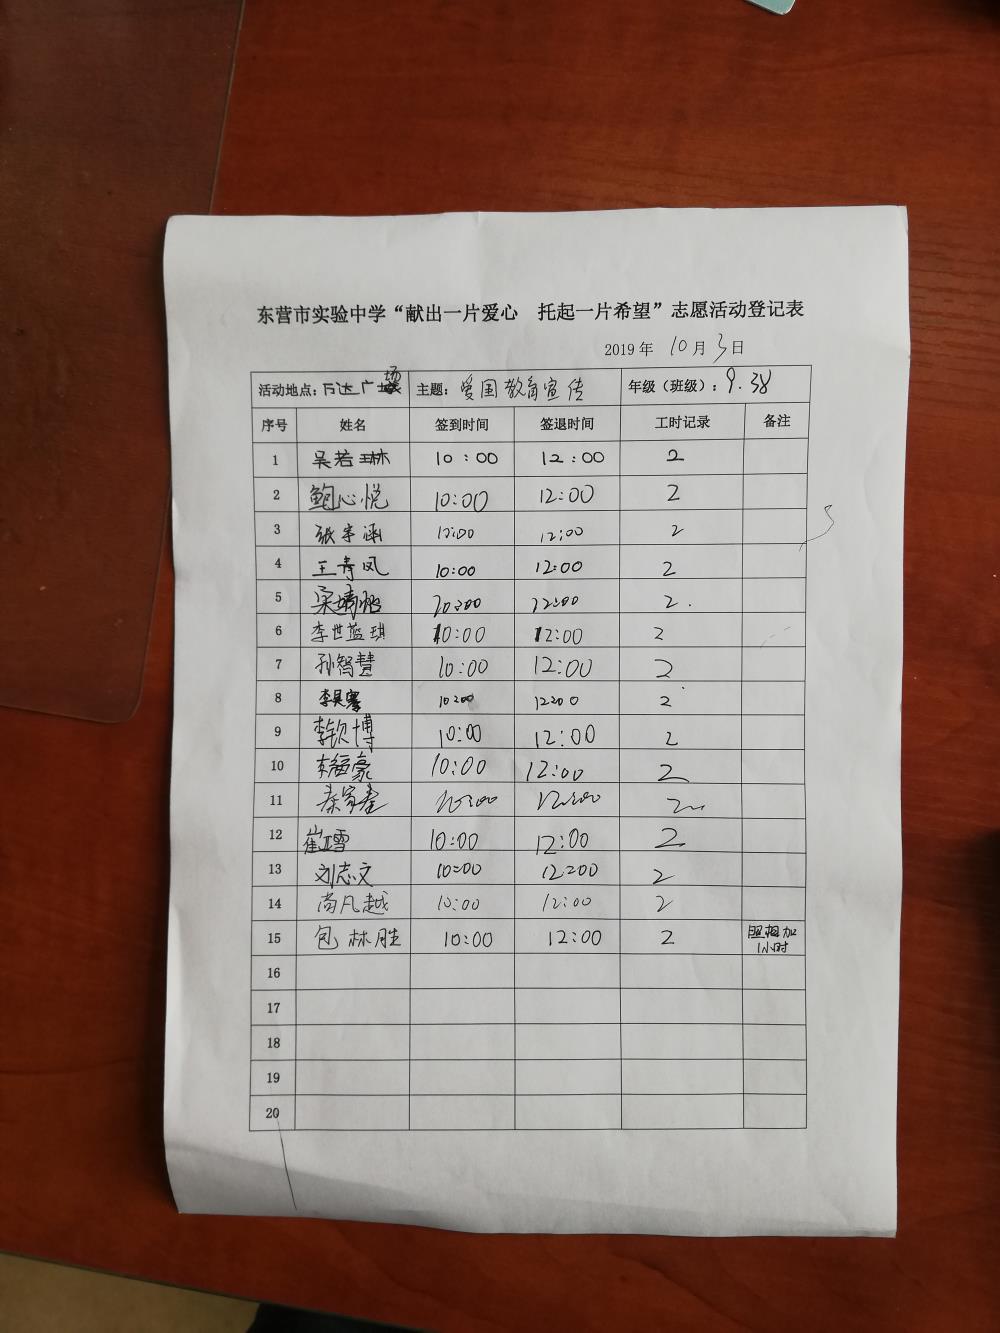 东营市实验中学“献出一片爱心 托起一片希望”志愿活动登记表
2019 年 10 月 3 日
活动地点：万达广场 主题：爱国教育宣传 年级（班级）：9.38
序号 姓名 签到时间 签退时间 工时记录 备注
1 吴若琳 10：00 12：00 2
2 鲍心悦 10:00 12:00 2
3 张宇涵 10:00 12:00 2
4 王青凤 10:00 12:00 2
5 10:00 12:00 2.
6 李世蓝琪 10:00 12:00 2
7 孙智慧 10:00 12:00 2
8 10:00 12:00 2
9 李钦博 10:00 12:00 2
10 李福豪 10:00 12:00 2
11 秦家奎 10:00 12:00 2
12 崔雪 10:00 12:00 2
13 刘志文 10:00 12:00 2
14 尚凡越 10:00 12:00 2
15 包林胜 10:00 12:00 2 照相加1小时
16
17
18
19
20